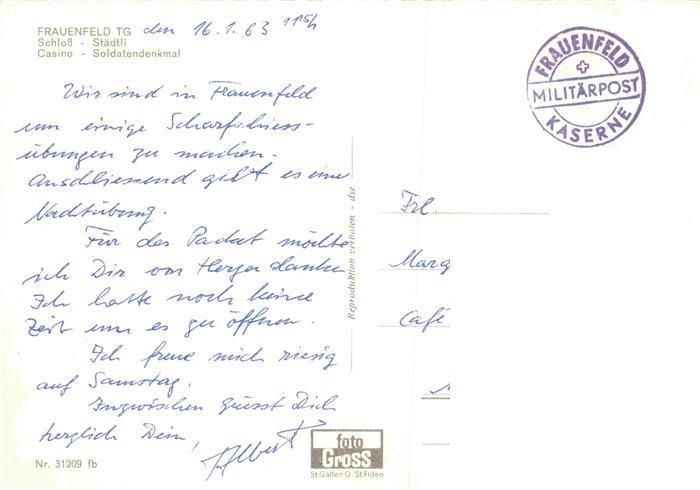 FRAUENFELD TG den 16.1.63 11 15h
Schloß - Städtli
Casino - Soldatendenkmal
Wir sind in Frauenfeld
um einige Scharfschiess-
übungen zu machen.
Anschliessend gibt es eine
Nachtübung.
Für das Packet möchte
ich Dir von Herzen danken
Ich hatte noch keine
Zeit um es zu öffnen.
Ich freue mich riesig
auf Samstag.
Inzwischen grüsst Dich
herzlich Dein,
Albert
Nr. 31209 fb
Reproduktion verboten - dse
foto
Gross
St.Gallen O. St.Fiden
FRAUENFELD
MILITÄRPOST
KASERNE
Frl.
Marg
Café